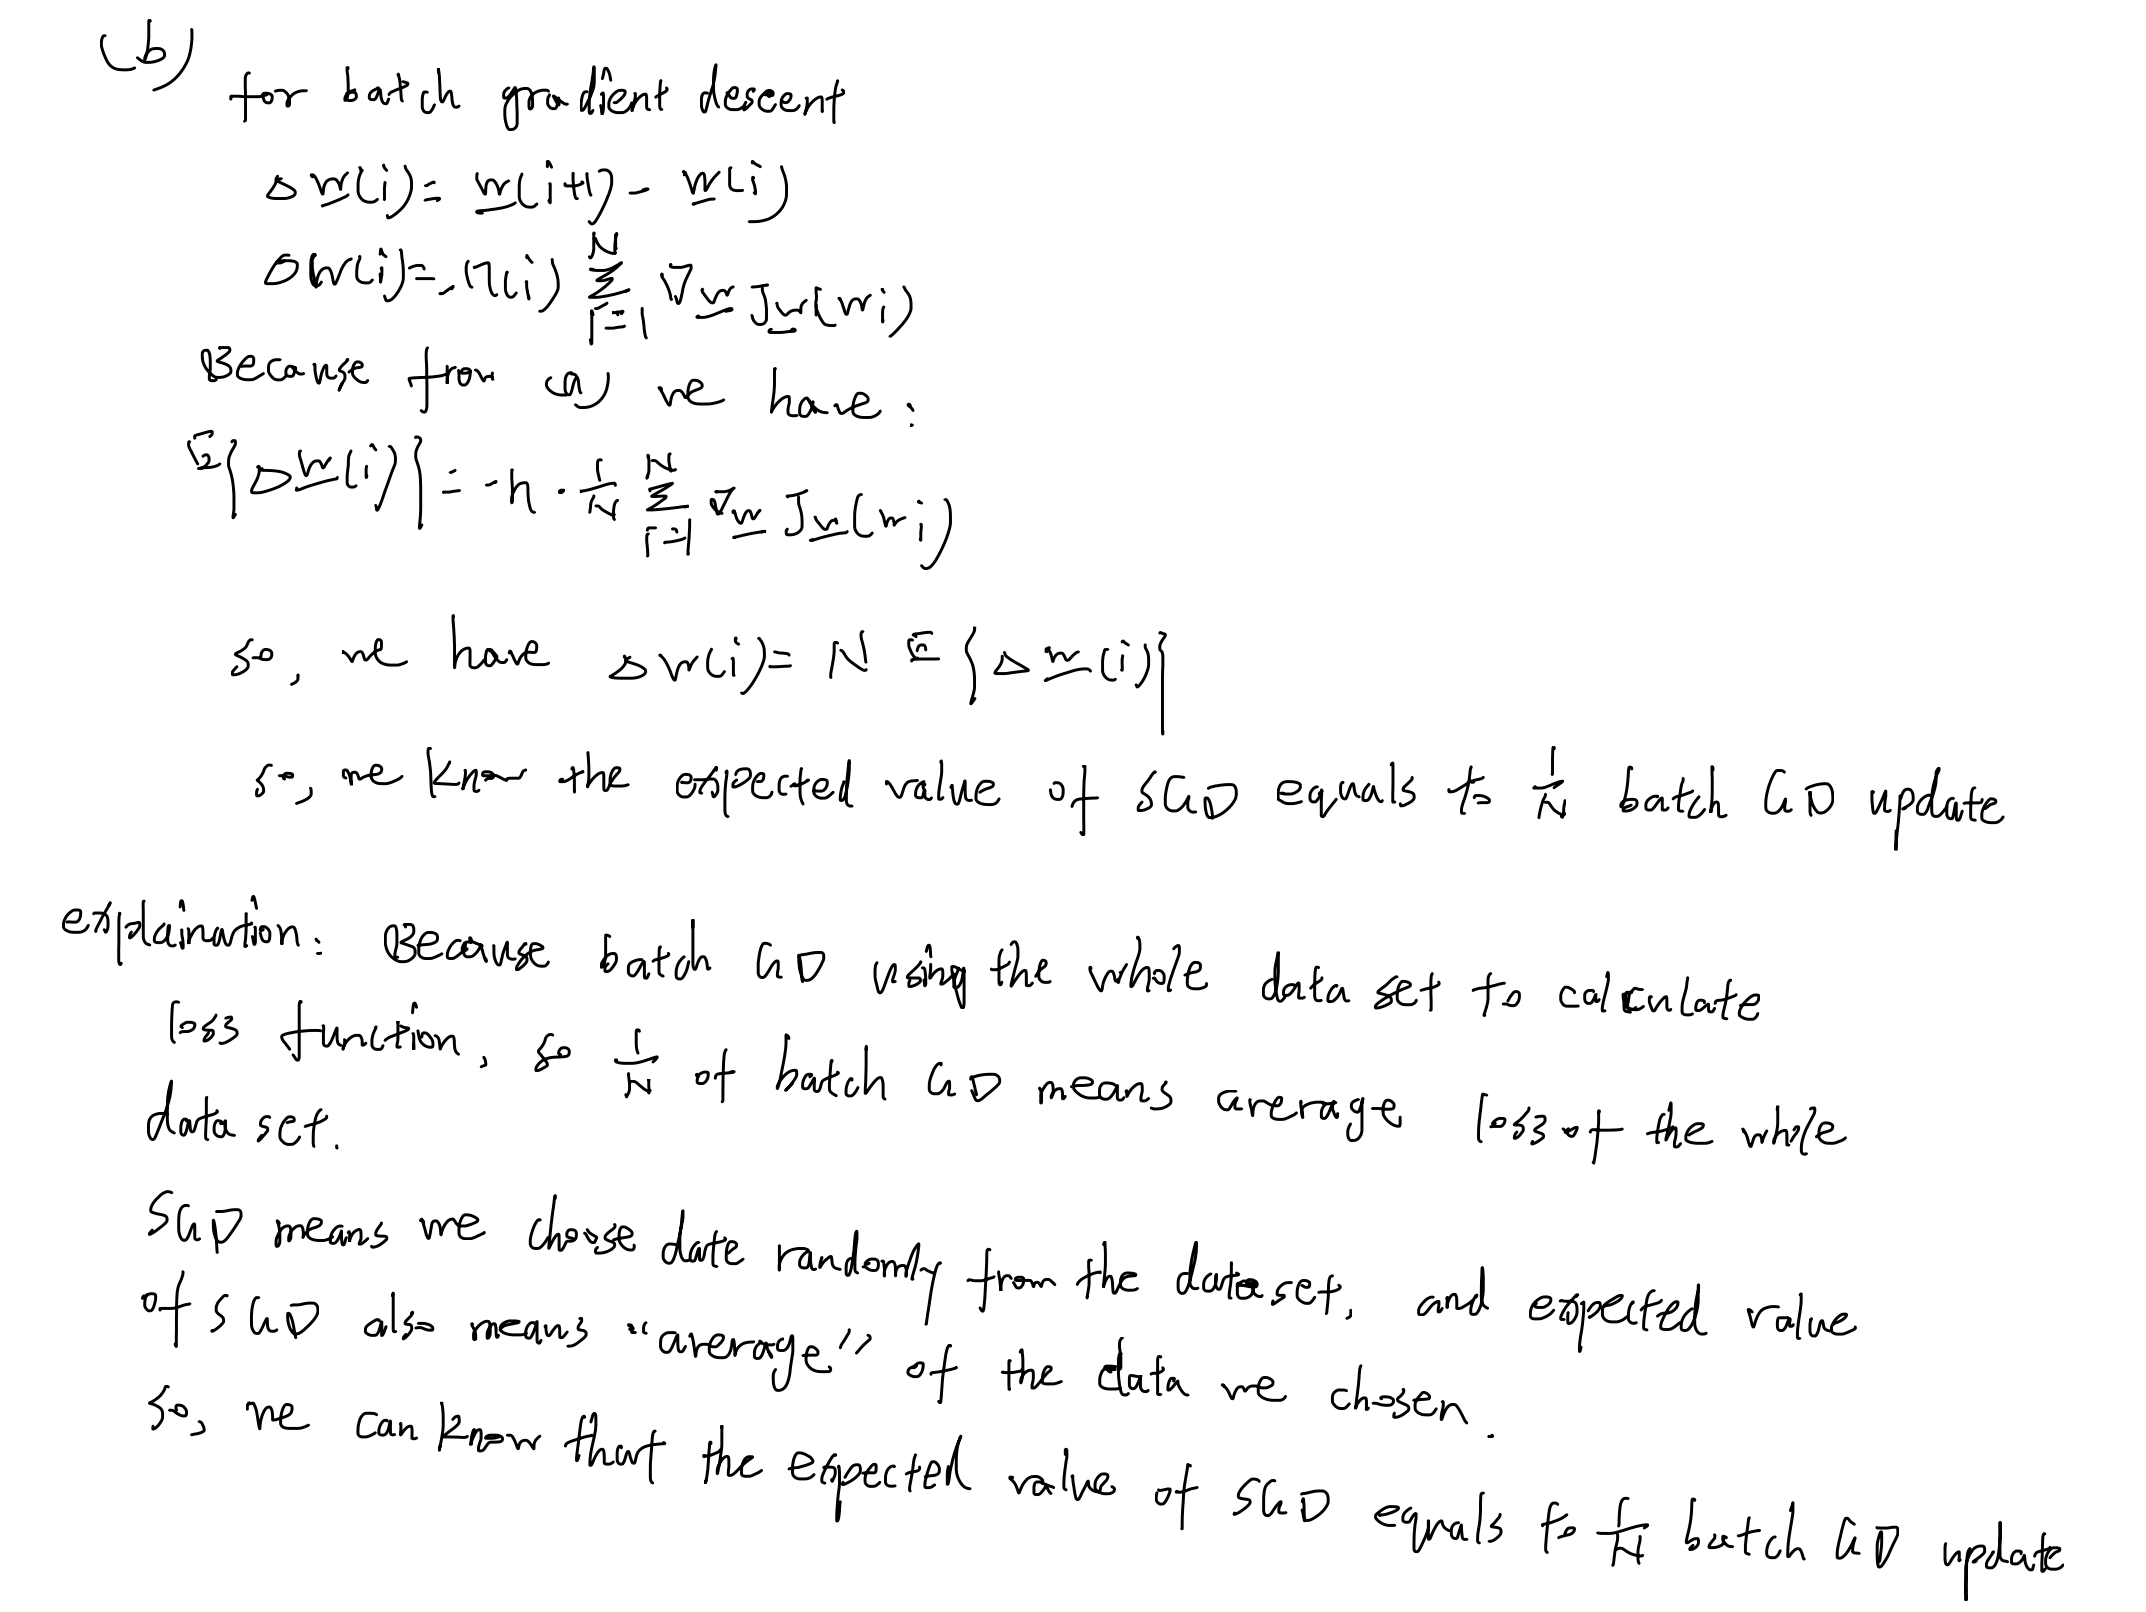 (b)
for batch gradient descent
Δw(i) = w(i+1) - w(i)
Δw(i) = -η(i) N Σ i=1 ∇w Jw(wi)
Because from (a) we have:
E{Δw(i)} = -η · 1/N N Σ i=1 ∇w Jw(wi)
so, we have Δw(i) = N E{Δw(i)}
so, we know the expected value of SGD equals to 1/N batch GD update
explaination: Because batch GD using the whole data set to calculate
loss function, so 1/N of batch GD means average loss of the whole
data set.
SGD means we choose date randomly from the dataset, and expected value
of SGD also means "average" of the data we chosen.
so, we can know that the expected value of SGD equals to 1/N batch GD update